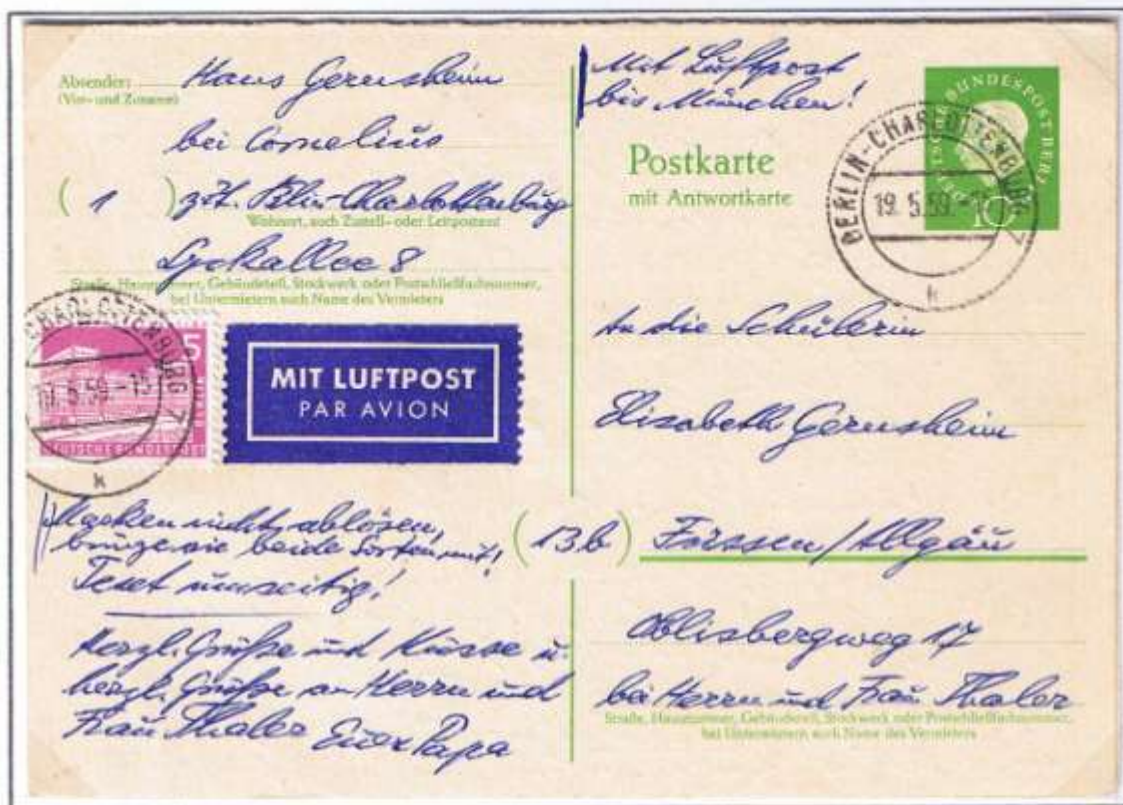 Absender: Hans Gernsheim
(Vor- und Zuname)
bei Cornelius
( 1 ) zzt. Bln-Charlottenburg
Wohnort, auch Zustell- oder Leitpostamt
8
Straße, Hausnummer, Gebäudeteil, Stockwerk oder Postschließfachnummer,
bei Untermietern auch Name des Vermieters
CHARLOTTENBURG 7
5.59.-15
k
5
DEUTSCHE BUNDESPOST
MIT LUFTPOST
PAR AVION
Marken nicht ablösen,
bringe sie beide Sorten mit!
Text umseitig!
Herzl. Grüße und Küsse u.
herzl. Grüße an Herrn und
Frau Thaler Euer Papa
Mit Luftpost
bis München!
Postkarte
mit Antwortkarte
DEUTSCHE BUNDESPOST BERLIN
10
BERLIN-CHARLOTTENBURG
19.5.59.-
k
An die Schülerin
Elisabeth Gernsheim
(13b) Füssen/Allgäu
17
bei Herrn und Frau Thaler
Straße, Hausnummer, Gebäudeteil, Stockwerk oder Postschließfachnummer,
bei Untermietern auch Name des Vermieters